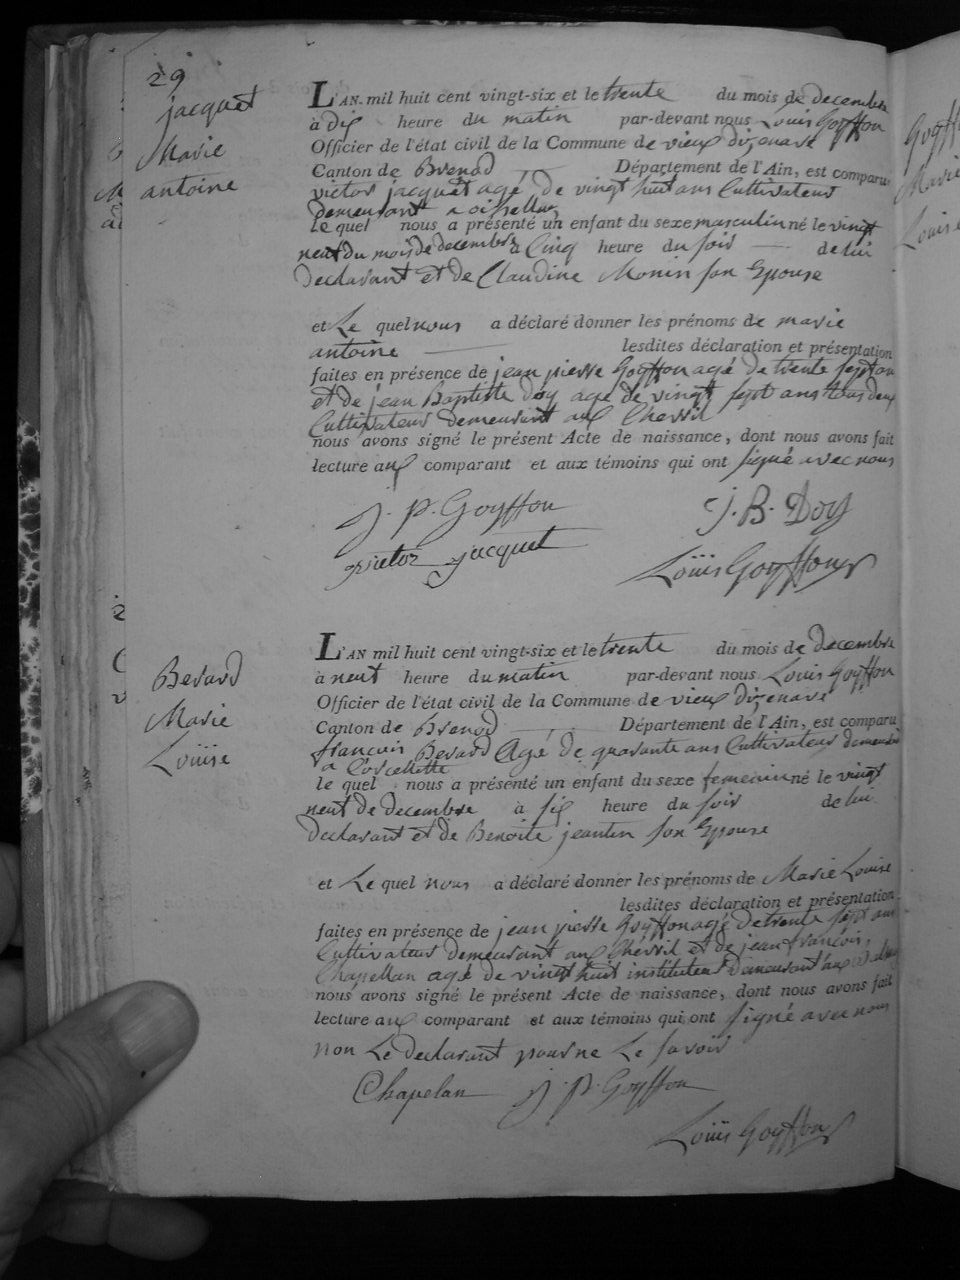 29
jacquet
Marie
antoine
L'AN mil huit cent vingt-six et le trente du mois de decembre
à dix heure du matin par-devant nous Louis Goÿffon
Officier de l'état civil de la Commune de vieux dizenave
Canton de Brenod Département de l'Ain, est comparu
victor jacquet agé de vingt huit ans Cultivateur
demeurant a
le quel nous a présenté un enfant du sexe masculin né le vingt
neuf du mois de decembre à Cinq heure du soir de lui
declarant et de Claudine Monin son Epouse
et Le quel nous a déclaré donner les prénoms de marie
antoine lesdites déclaration et présentation
faites en présence de jean pierre Goÿffon agé de trente sept an
et de jean Baptiste Doÿ agé de vingt sept ans tous deux
Cultivateur demeurant aux Chevril
nous avons signé le présent Acte de naissance, dont nous avons fait
lecture aux comparant et aux témoins qui ont signé avec nous
J. P. Goÿffon J. B. Doÿ
victor jacquet Loüis Goÿffon
Berard
Marie
Loüise
L'AN mil huit cent vingt-six et le trente du mois de decembre
à neuf heure du matin par-devant nous Louis Goÿffon
Officier de l'état civil de la Commune de vieux dizenave
Canton de Brenod Département de l'Ain, est comparu
francois Berard Agé de quarante ans Cultivateur demeurant
a
le quel nous a présenté un enfant du sexe femeinin né le vingt
neuf de decembre à six heure du soir de lui
declarant et de Benoite jeantin son Epouse
et Le quel nous a déclaré donner les prénoms de Marie Louise
lesdites déclaration et présentation
faites en présence de jean pierre Goÿffon agé de trente sept ans
Cultivateur demeurant aux Chevril et de jean francois
Chapellan agé de vingt huit instituteur demeurant aux
nous avons signé le présent Acte de naissance, dont nous avons fait
lecture aux comparant et aux témoins qui ont signé avec nous
non Le declarant pour ne Le savoir
Chapelan J. P. Goÿffon
Loüis Goÿffon
Goÿff
Marie
Louise